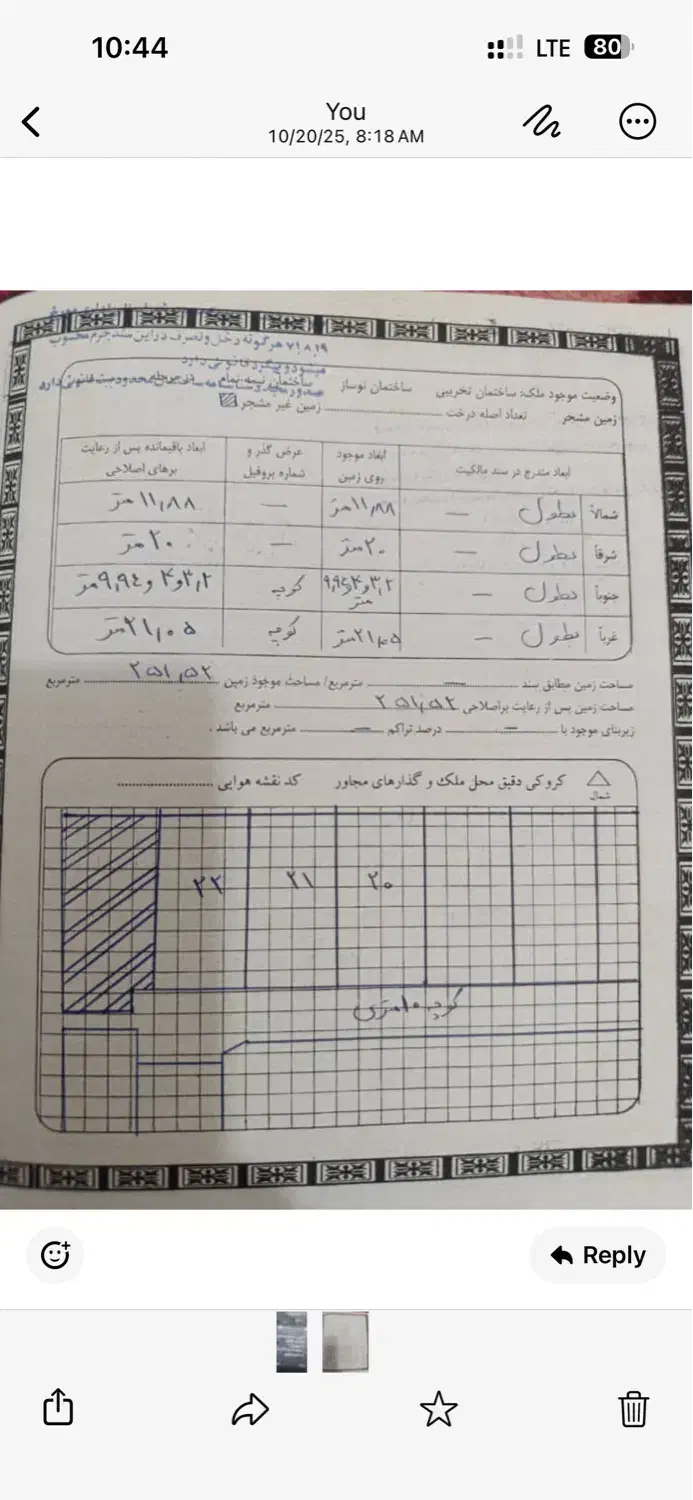 10:44
LTE 80
You
10/20/25, 8:18 AM
هرگونه دخل و تصرف در این سند جرم محسوب
میشود و پیگرد قانونی دارد
وضعیت موجود ملک: ساختمان تخریبی ساختمان نوساز ساختمان نیمه تمام
زمین مشجر تعداد اصله درخت زمین غیر مشجر
ابعاد مندرج در سند مالکیت ابعاد موجود روی زمین عرض گذر و شماره پروفیل ابعاد باقیمانده پس از رعایت برهای اصلاحی
شمالاً بطول — ۱۱٫۸۸ متر — ۱۱٫۸۸ متر
شرقاً بطول — ۲۰ متر — ۲۰ متر
جنوباً بطول — ۳٫۲ و ۴ و ۹٫۹۴ متر کوچه ۳٫۲ و ۴ و ۹٫۹۴ متر
غرباً بطول — ۲۱٫۰۵ متر کوچه ۲۱٫۰۵ متر
مساحت زمین مطابق سند — مترمربع/ مساحت موجود زمین ۲۵۱٫۵۲ مترمربع
مساحت زمین پس از رعایت براصلاحی ۲۵۱٫۵۲ مترمربع
زیربنای موجود با — درصد تراکم — مترمربع می باشد .
شمال
کروکی دقیق محل ملک و گذارهای مجاور کد نقشه هوایی
۲۰ ۲۱ ۲۲
کوچه ۱۰ متری
Reply